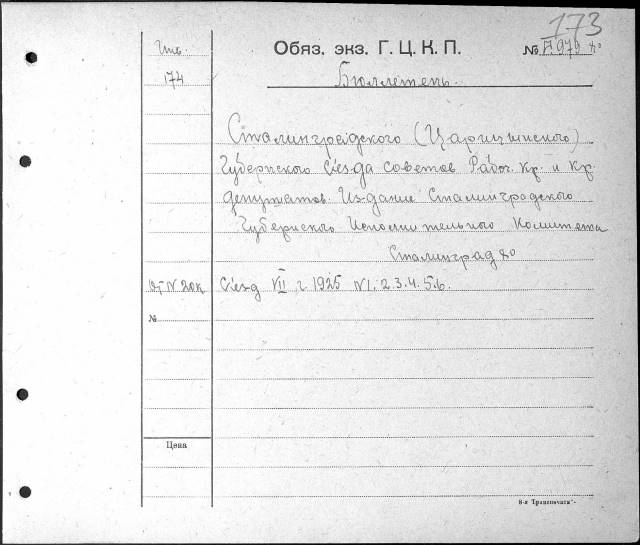 173
Инв. Обяз. экз. Г. Ц. К. П. №
174 Бюллетень
Сталинградского (Царицынского)
Губернского Съезда Советов Рабоч. Кр. и Кр.
депутатов. Издание Сталинградского
Губернского Исполнительного Комитета
Сталинград 8°
Съезд VII г. 1925 N1.2.3.4.5.6.
№
Цена
8-я "Транспечати".